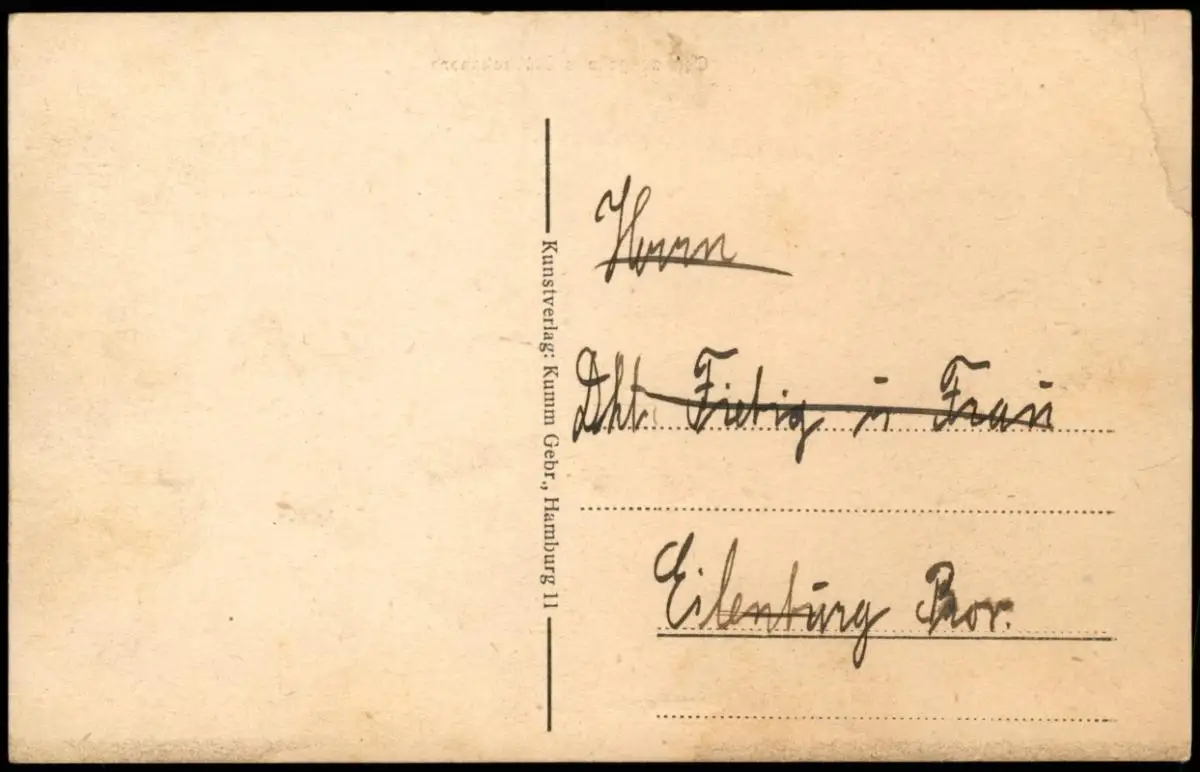 Kunstverlag: Kumm Gebr., Hamburg 11
Herrn
Dkt. Fiebig u Frau
Eilenburg